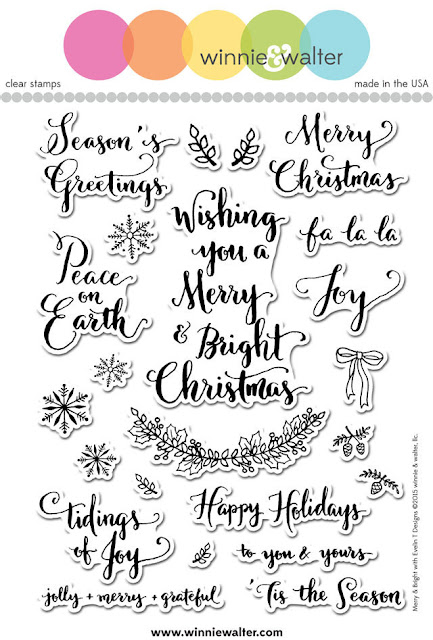 winnie & walter
clear stamps
made in the USA
Season's
Greetings
Merry
Christmas
Wishing
you a
Merry
& Bright
Christmas
fa la la
Peace
on
Earth
Joy
tidings
of Joy
Happy Holidays
to you & yours
jolly + merry + grateful
'Tis the Season
Merry & Bright with Evelin T Designs ©2015 winnie & walter, llc.
www.winniewalter.com